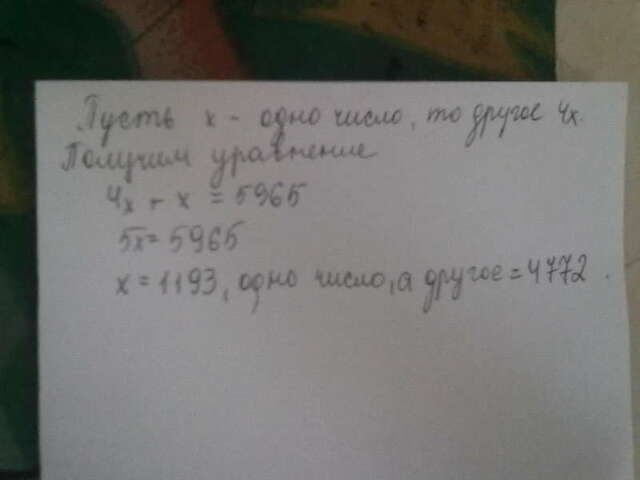 Пусть x - одно число, то другое 4x.
Получим уравнение
4x + x = 5965
5x = 5965
x = 1193, одно число, а другое = 4772.